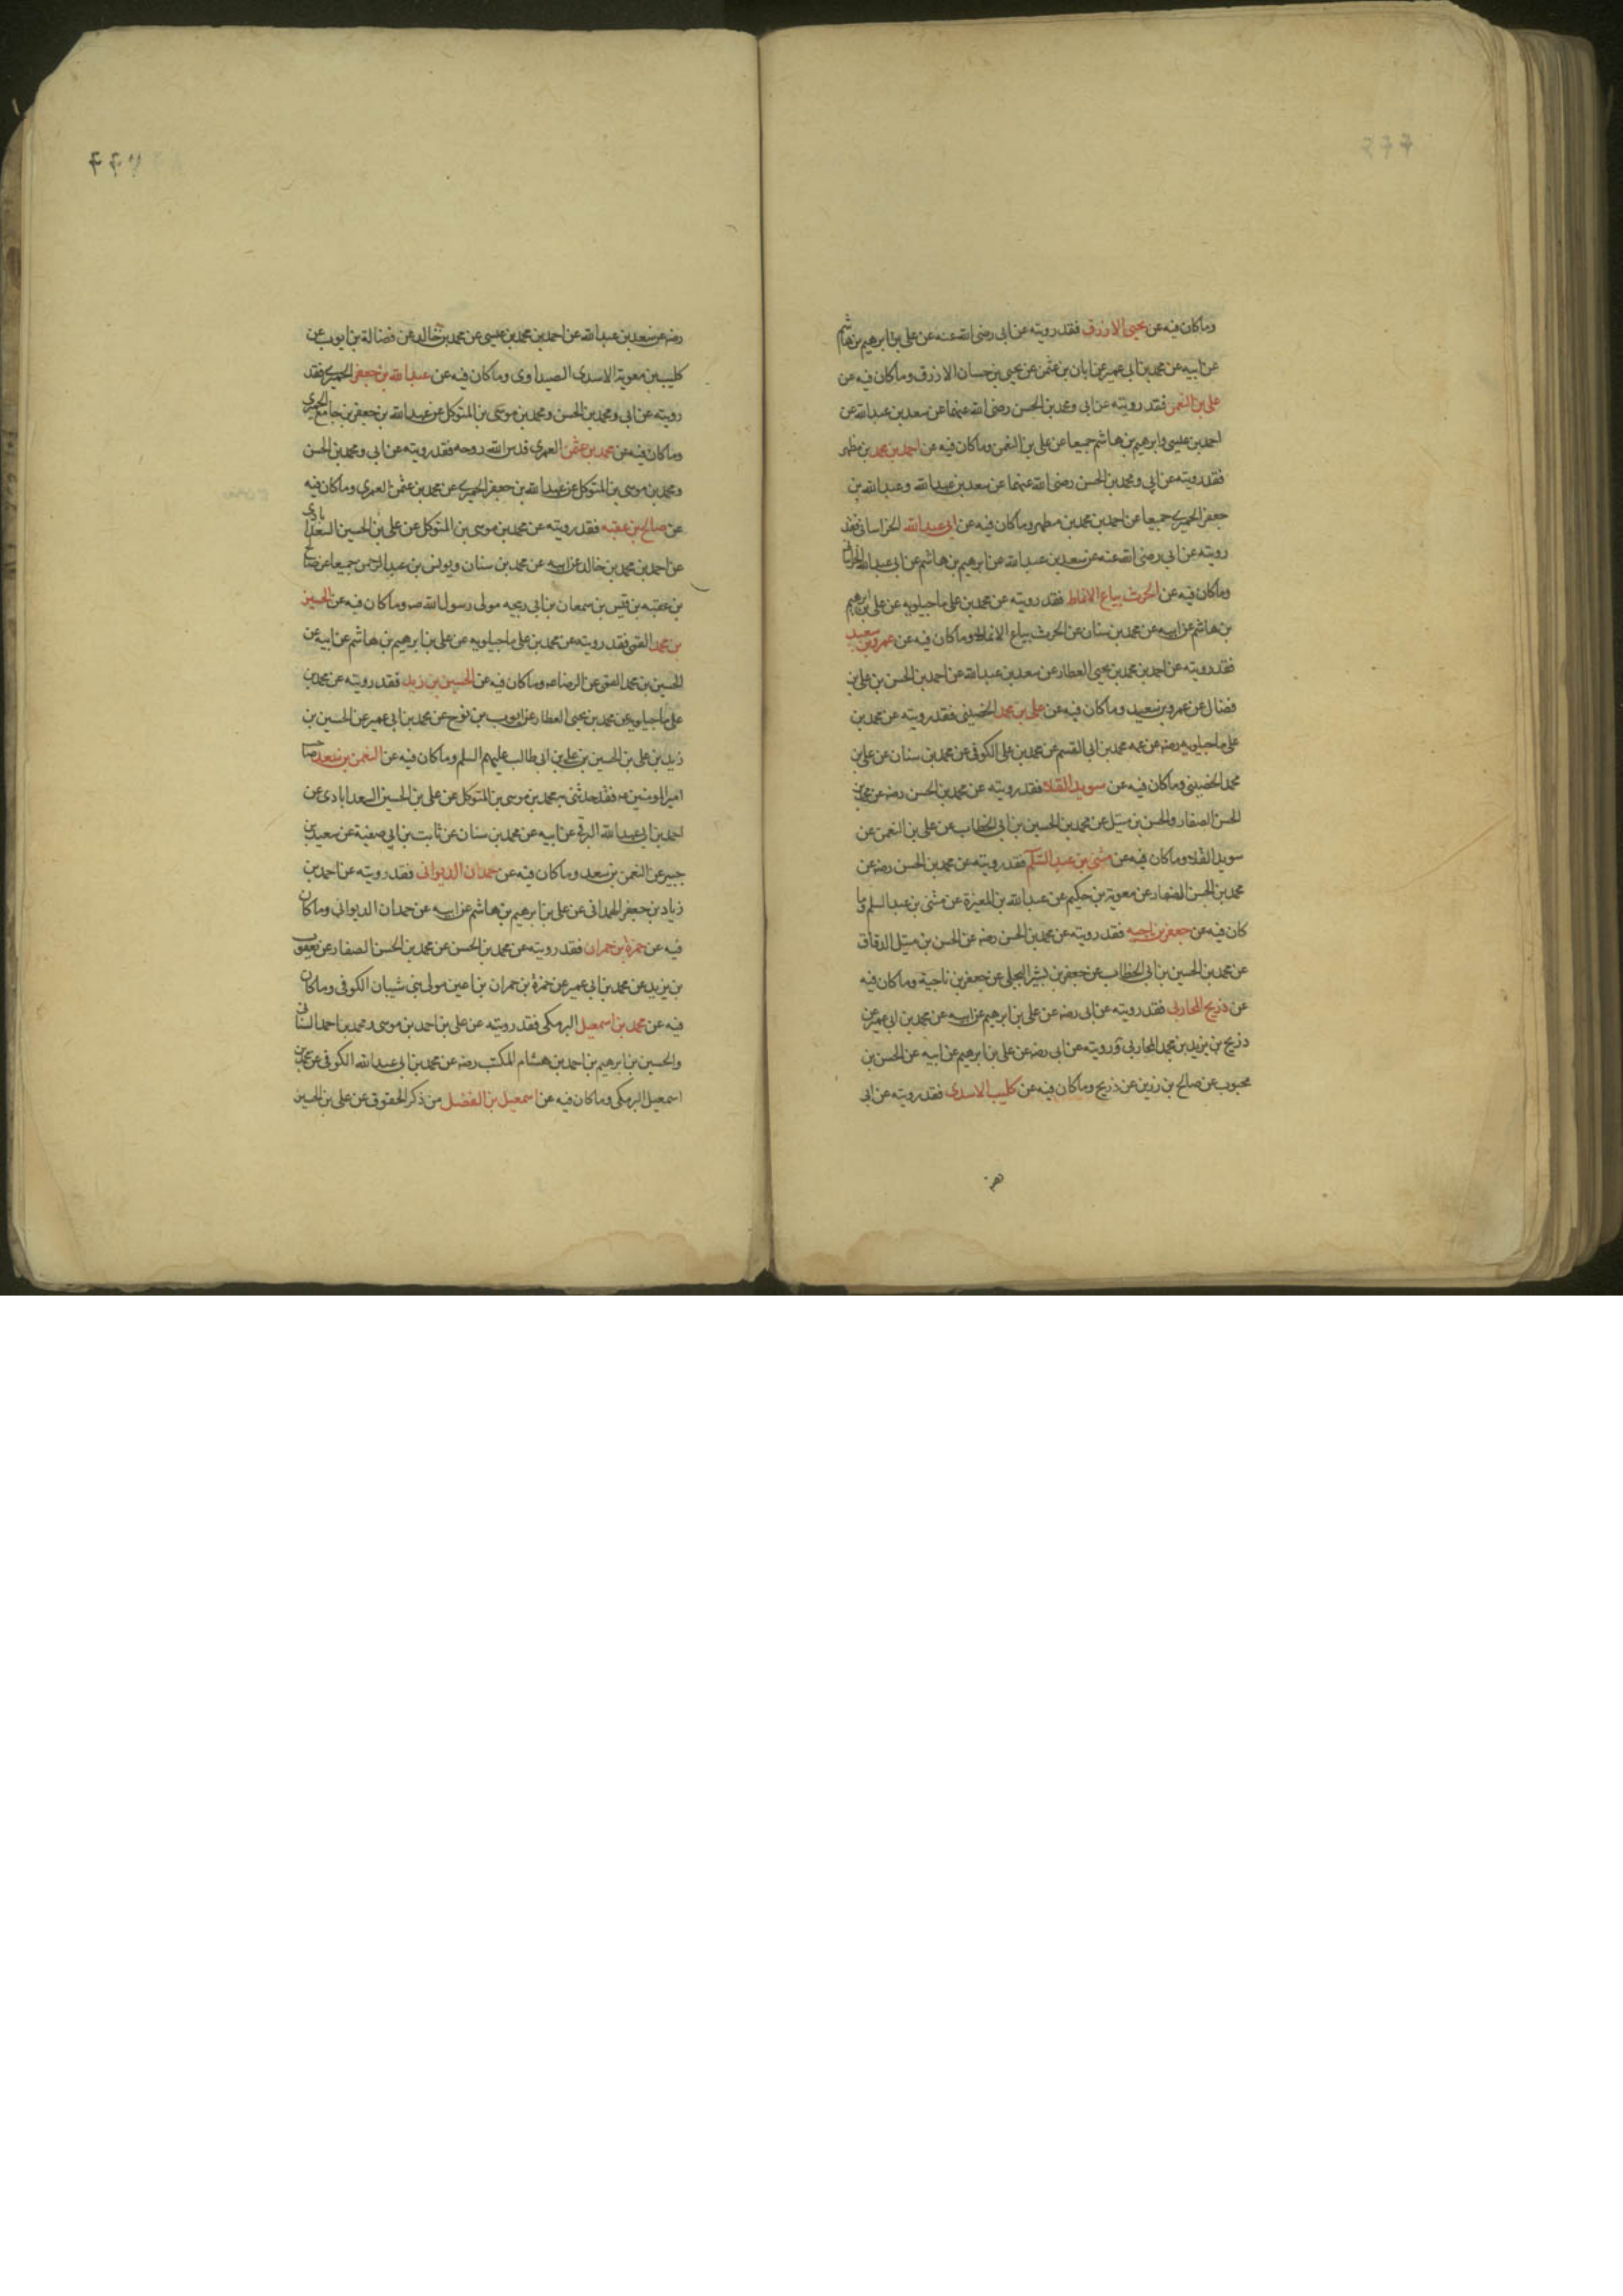 وماكان فيه عن يحيى الازرق فقد رويته عن ابى رضى الله عنه عن على بن ابرهيم بن هاشم
عن ابيه عن محمد بن ابى عمير عن ابان بن عثمن عن يحيى بن حسان الازرق وماكان فيه عن
على بن النعمن فقد رويته عن ابى ومحمد بن الحسن رضى الله عنهما عن سعد بن عبدالله عن
احمد بن عيسى وابرهيم بن هاشم جميعا عن على بن النعمن وماكان فيه عن احمد بن محمد بن مطهر
فقد رويته عن ابى ومحمد بن الحسن رضى الله عنهما عن سعد بن عبدالله وعبدالله بن
جعفر الحميرى جميعا عن احمد بن محمد بن مطهر وماكان فيه عن ابى عبدالله الخراسانى فقد
رويته عن ابى رضى الله عنه عن سعد بن عبدالله عن ابرهيم بن هاشم عن ابى عبدالله الخراسانى
وماكان فيه عن الحرث بياع الانماط فقد رويته عن محمد بن على ماجيلويه عن على بن ابرهيم
بن هاشم عن ابيه عن محمد بن سنان عن الحرث بياع الانماط وماكان فيه عن عمرو بن سعيد
فقد رويته عن احمد بن محمد بن يحيى العطار عن سعد بن عبدالله عن احمد بن الحسن بن على بن
فضال عن عمرو بن سعيد وماكان فيه عن على بن محمد الحضينى فقد رويته عن محمد بن
على ماجيلويه رضه عن عمه محمد بن ابى القسم عن محمد بن على الكوفى عن محمد بن سنان عن على بن
محمد الحضينى وماكان فيه عن سويد القلا فقد رويته عن محمد بن الحسن رضه عن محمد بن
الحسن الصفار والحسن بن متيل عن محمد بن الحسين بن ابى الخطاب عن على بن النعمن عن
سويد القلا وماكان فيه عن مثنى بن عبد السلام فقد رويته عن محمد بن الحسن رضه عن
محمد بن الحسن الصفار عن معوية بن حكيم عن عبدالله بن المغيرة عن مثنى بن عبد السلم وما
كان فيه عن جعفر بن ناجيه فقد رويته عن محمد بن الحسن رضه عن الحسن بن متيل الدقاق
عن محمد بن الحسين بن ابى الخطاب عن جعفر بن بشير البجلى عن جعفر بن ناجية وماكان فيه
عن ذريح المحاربى فقد رويته عن ابى رضه عن على بن ابرهيم عن ابيه عن محمد بن ابى عمير عن
ذريح بن يزيد بن محمد المحاربى ورويته عن ابى رضه عن على بن ابرهيم عن ابيه عن الحسن بن
محبوب عن صالح بن رزين عن ذريح وماكان فيه عن كليب الاسدى فقد رويته عن ابى
رضه عن سعد بن عبدالله عن احمد بن محمد بن عيسى عن محمد بن خالد عن فضالة بن ايوب عن
كليب بن معوية الاسدى الصيداوى وماكان فيه عن عبدالله بن جعفر الحميرى فقد
رويته عن ابى ومحمد بن الحسن ومحمد بن موسى بن المتوكل عن عبدالله بن جعفر بن جامع الحميرى
وماكان فيه عن محمد بن عثمن العمرى قدس الله روحه فقد رويته عن ابى ومحمد بن الحسن
ومحمد بن موسى بن المتوكل عن عبدالله بن جعفر الحميرى عن محمد بن عثمن العمرى وماكان فيه
عن صالح بن عقبه فقد رويته عن محمد بن موسى بن المتوكل عن على بن الحسين السعدابادى
عن احمد بن محمد بن خالد عن ابيه عن محمد بن سنان ويونس بن عبدالرحمن جميعا عن صالح
بن عقبه بن قيس بن سمعان بن ابى ربيحه مولى رسول الله صه وماكان فيه عن الحسين
بن محمد القمى فقد رويته عن محمد بن على ماجيلويه عن على بن ابرهيم بن هاشم عن ابيه عن
الحسين بن محمد القمى عن الرضا عه وماكان فيه عن الحسين بن زيد فقد رويته عن محمد بن
على ماجيلويه عن محمد بن يحيى العطار عن ايوب بن نوح عن محمد بن ابى عمير عن الحسين بن
زيد بن على بن الحسين بن على بن ابى طالب عليهم السلم وماكان فيه عن النعمن بن سعد صاحب
امير المومنين عه فقد حدثنى به محمد بن موسى بن المتوكل عن على بن الحسين السعدابادى عن
احمد بن ابى عبدالله البرقى عن ابيه عن محمد بن سنان عن ثابت بن ابى صفية عن سعيد بن
جبير عن النعمن بن سعد وماكان فيه عن حمدان الديوانى فقد رويته عن احمد بن
زياد بن جعفر الهمدانى عن على بن ابرهيم بن هاشم عن ابيه عن حمدان الديوانى وماكان
فيه عن حمزة بن حمران فقد رويته عن محمد بن الحسن عن محمد بن الحسن الصفار عن يعقوب
بن يزيد عن محمد بن ابى عمير عن حمزة بن حمران بن اعين مولى بنى شيبان الكوفى وماكان
فيه عن محمد بن اسمعيل البرمكى فقد رويته عن على بن احمد بن موسى ومحمد بن احمد السنانى
والحسين بن ابرهيم بن احمد بن هشام المكتب رضه عن محمد بن ابى عبدالله الكوفى عن محمد بن
اسمعيل البرمكى وماكان فيه عن اسمعيل بن الفضل من ذكر الحقوق عن على بن الحسين